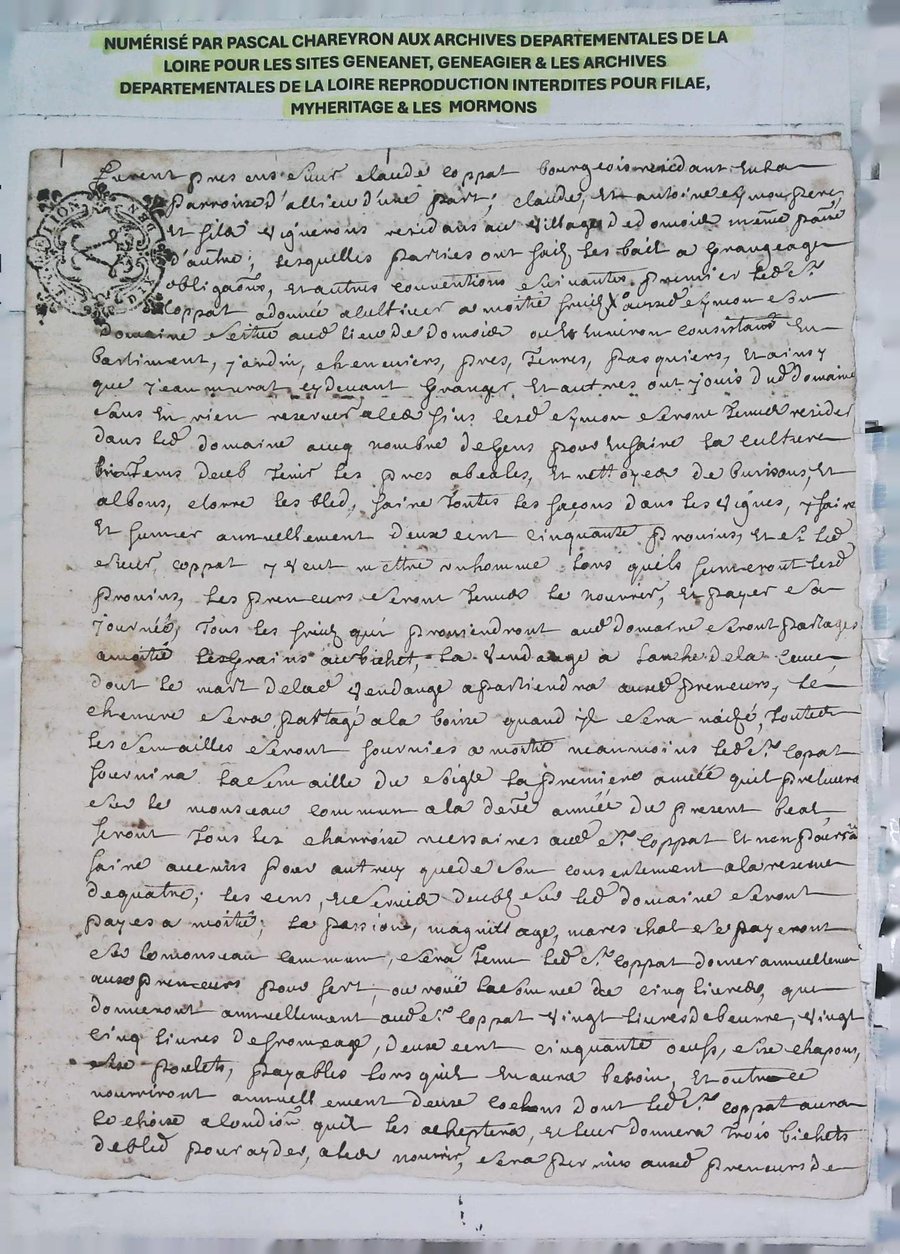 NUMÉRISÉ PAR PASCAL CHAREYRON AUX ARCHIVES DEPARTEMENTALES DE LA
LOIRE POUR LES SITES GENEANET, GENEAGIER & LES ARCHIVES
DEPARTEMENTALES DE LA LOIRE REPRODUCTION INTERDITES POUR FILAE,
MYHERITAGE & LES MORMONS
furent presens sieur claude coppat bourgeois residant en la
parroisse d'allieu d'une part; claude, et antoine eymon pere,
et fils vignerons residans au village de domois meme parr
d'autre; lesquelles parties ont fait les bail a grangeage
obligaons, et autres conventions suivantes premier led sr
coppat a donné a cultiver a moitié fruit auxd eymon un
domaine situé aud lieu de domois ou environ consistant en
bastiment, jardin, cheneviers, pres, terres, pasquiers, et ainsy
que jean murat cydevant granger et autres ont jouis dud domaine
sans en rien reserver lesd eymon seront tenus resider
dans led domaine avec nombre de gens pour en faire la culture
tenir les pres abeales, et nettoyes de buissons, et
clorre les bled, faire toutes les façons dans les vignes, y faire
et fumer annuellement deux cent cinquante provins, et si led
sieur coppat y veut mettre un homme lors quils fumeront lesd
provins, les preneurs seront tenus le nourrir, et payer sa
journée, tous les fruits qui proviendront aud domaine seront partages
a moitié les grains au bichet, la vendange a de la cuve,
dont le mart de lad vendange apartiendra auxd preneurs, le
chenvre sera partagé a la boire quand il sera naisé, toutes
les semailles seront fournies a moitié neanmoins led sr coppat
fournira la semaille du seigle la premiere année quil prelevera
sur le monseau commun a la dere année du present beal
feront tous les charrois necessaires aud sr coppat et non pourra
faire aucuns pour autruy que de son consentement a la reserve
de quatre; les cens, et services deubs sur led domaine seront
payes a moitié; la passion, magnillage, mareschal se payeront
sur le monseau commun, sera tenu led sr coppat donner annuellement
aux preneurs pour fert, ou roüe la somme de cinq livres, qui
donneront annuellement aud sr coppat vingt livres de beurre, vingt
cinq livres de fromage, deux cent cinquante oeufs, six chapons,
six poulets, payables lors quil en aura besoin, et outre ce
nourriront annuellement deux cochons dont led sr coppat aura
le choix a condion quil les acheptera, et leur donnera trois bichets
de bled pour ayder, a les nourrir, sera permis auxd preneurs de